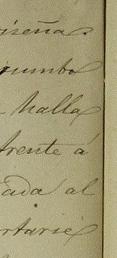 iseñas
rumbo
halla
frente á
tada al
rtarse